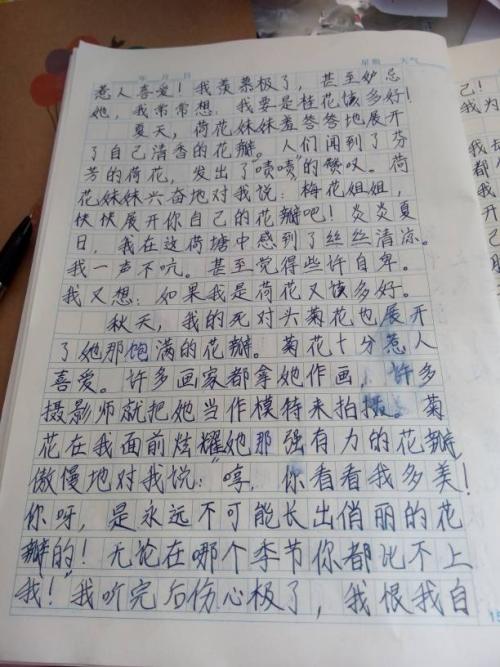 年 月 日 星期 天气
惹人喜爱！我羡慕极了，甚至妒忌
她，我常常想：我要是桂花该多好！
夏天，荷花妹妹羞答答地展开
了自己清香的花瓣。人们闻到了芬
芳的荷花，发出了“啧啧”的赞叹。荷
花妹妹兴奋地对我说：梅花姐姐，
快快展开你自己的花瓣吧！炎炎夏
日，我在这荷塘中感到了丝丝清凉。
我一声不吭。甚至觉得些许自卑。
我又想：如果我是荷花又该多好。
秋天，我的死对头菊花也展开
了她那饱满的花瓣。菊花十分惹人
喜爱。许多画家都拿她作画，许多
摄影师就把她当作模特来拍摄。菊
花在我面前炫耀她那强有力的花瓣，
傲慢地对我说：“哼，你看看我多美！
你呀，是永远不可能长出俏丽的花
瓣的！无论在哪个季节你都比不上
我！”我听完后伤心极了，我恨我自
己！
我为
15